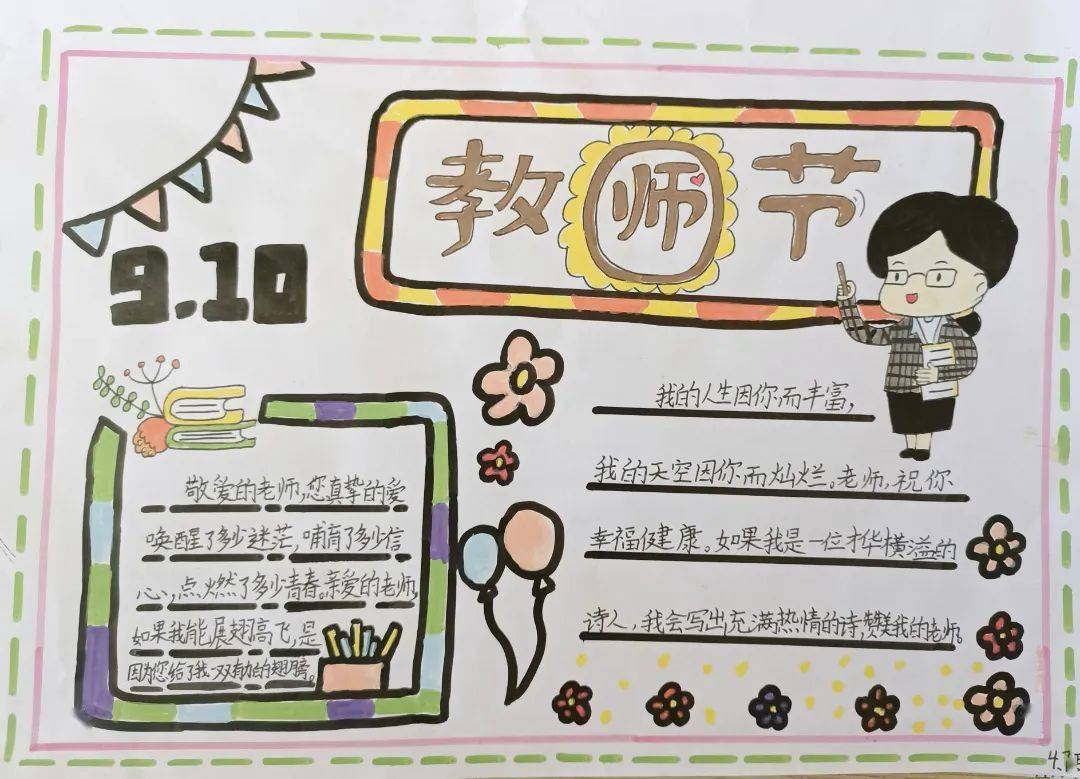 教师节
9.10
敬爱的老师,您真挚的爱
唤醒了多少迷茫,哺育了多少信
心,点燃了多少青春。亲爱的老师,
如果我能展翅高飞,是
因为您给了我一双有力的翅膀。
我的人生因你而丰富,
我的天空因你而灿烂。老师,祝你
幸福健康。如果我是一位才华横溢的
诗人,我会写出充满热情的诗,赞美我的老师。